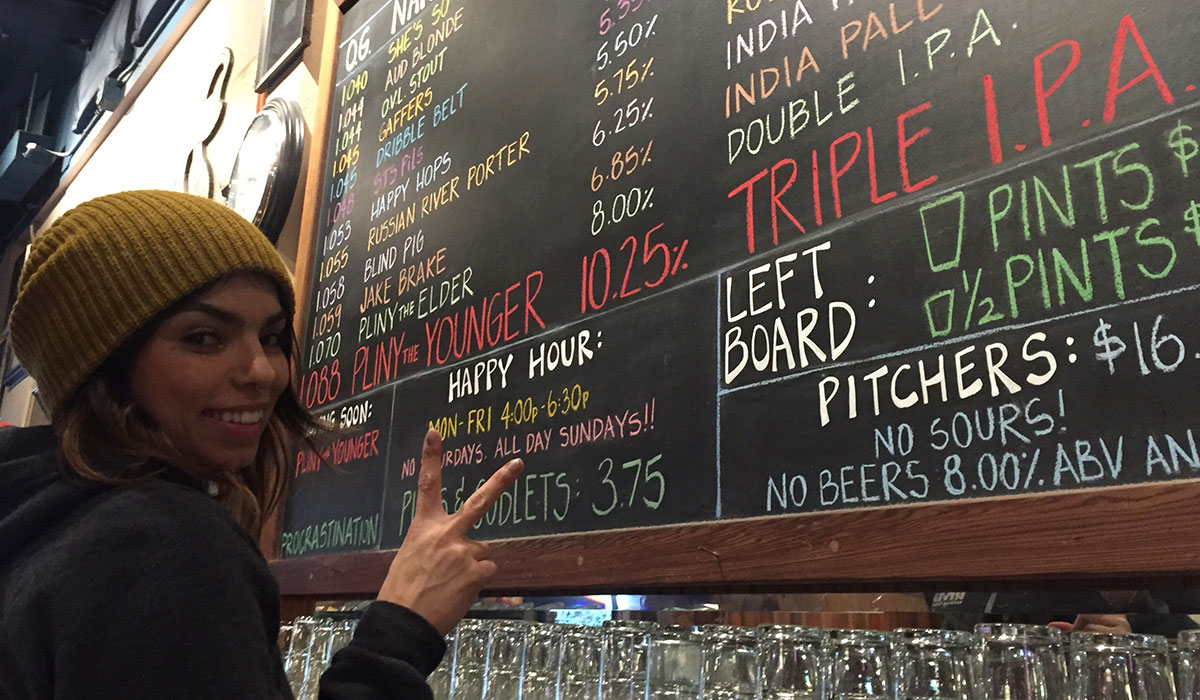 O.G. NA
1.040 SHE'S SO 5.35%
1.044 AUD BLONDE 5.50%
1.044 OVL STOUT 5.75%
1.045 GAFFERS 6.25%
1.045 DRIBBLE BELT 6.85%
1.045 STS PILS 8.00%
1.053 HAPPY HOPS
1.055 RUSSIAN RIVER PORTER
1.058 BLIND PIG
1.059 JAKE BRAKE
1.070 PLINY THE ELDER
1.088 PLINY THE YOUNGER 10.25%
INDIA
INDIA PALE
DOUBLE I.P.A.
TRIPLE I.P.A.
NG SOON:
PLINY THE YOUNGER
PROCRASTINATION
HAPPY HOUR:
MON-FRI 4:00P-6:30P
NO URDAYS. ALL DAY SUNDAYS!!
P S & GODLETS: 3.75
LEFT BOARD:
PINTS $
1/2 PINTS $
PITCHERS: $16
NO SOURS!
NO BEERS 8.00% ABV AN